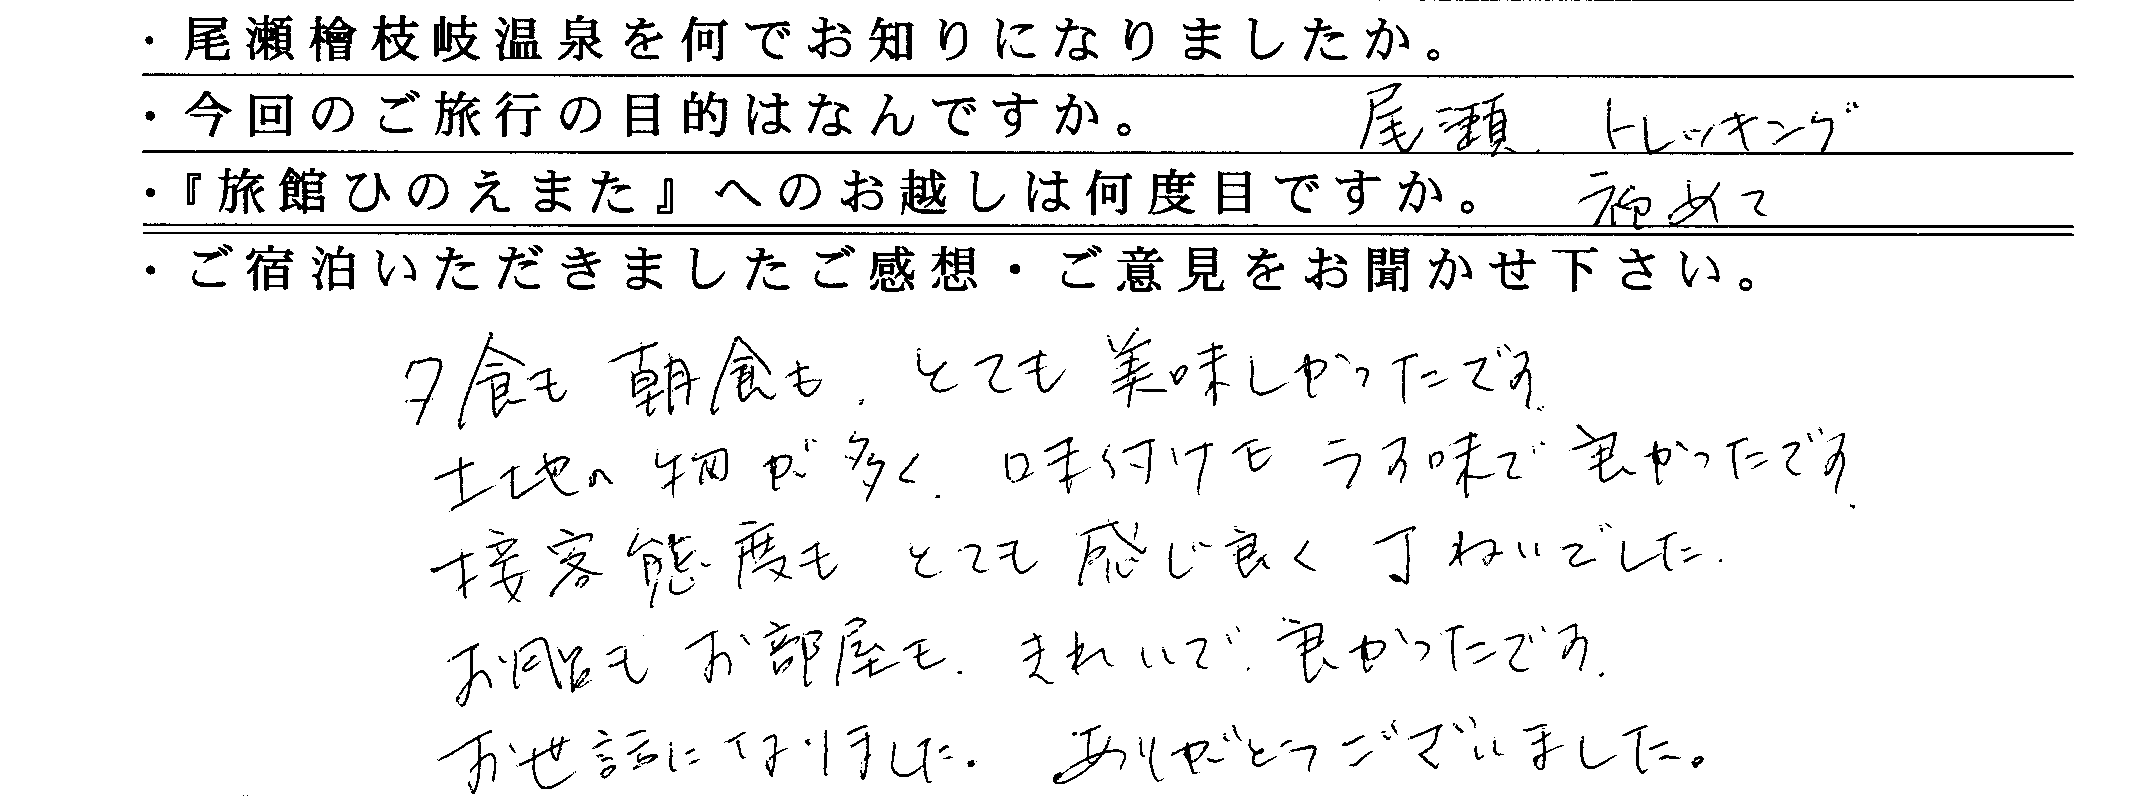 ・尾瀬檜枝岐温泉を何でお知りになりましたか。
・今回のご旅行の目的はなんですか。 尾瀬、トレッキング
・『旅館ひのえまた』へのお越しは何度目ですか。 初めて
・ご宿泊いただきましたご感想・ご意見をお聞かせ下さい。
夕食も朝食も、とても美味しかったです。
土地の物が多く、味付けもうす味で良かったです。
接客態度もとても感じ良く丁ねいでした。
お風呂もお部屋も、きれいで、良かったです。
お世話になりました。ありがとうございました。